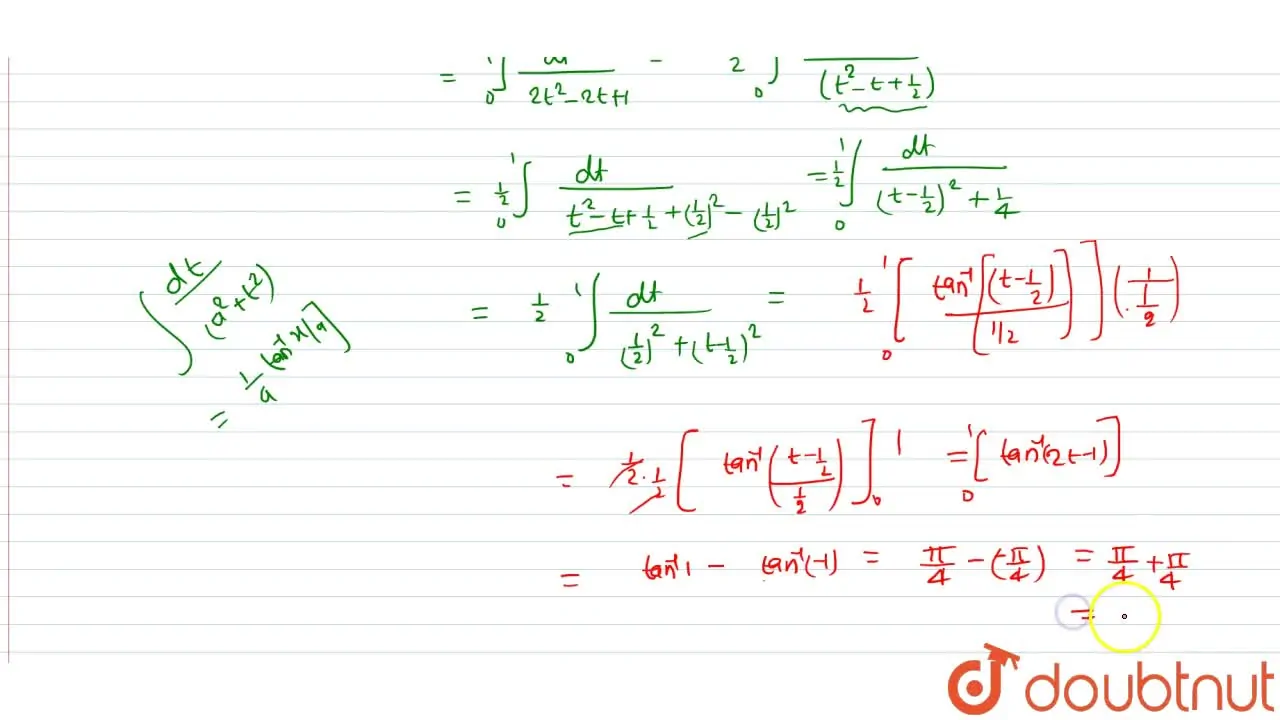 = ₀∫¹ / 2t²-2t+1 - 2 ₀∫ / (t²-t+1/2)
= 1/2 ₀∫¹ dt / t²-t+1/2+(1/2)²-(1/2)² = 1/2 ₀∫¹ dt / (t-1/2)²+1/4
∫ dt / (a²+t²)
= 1/a (tan⁻¹ x/a)
= 1/2 ₀∫¹ dt / (1/2)²+(t-1/2)² = 1/2 ₀¹[tan⁻¹[(t-1/2)/1/2]] (1/1/2)
= 1/2·1/2 [tan⁻¹((t-1/2)/(1/2))]₀¹ = ₀¹[tan⁻¹(2t-1)]
= tan⁻¹1 - tan⁻¹(-1) = π/4 - (-π/4) = π/4 + π/4
=
doubtnut